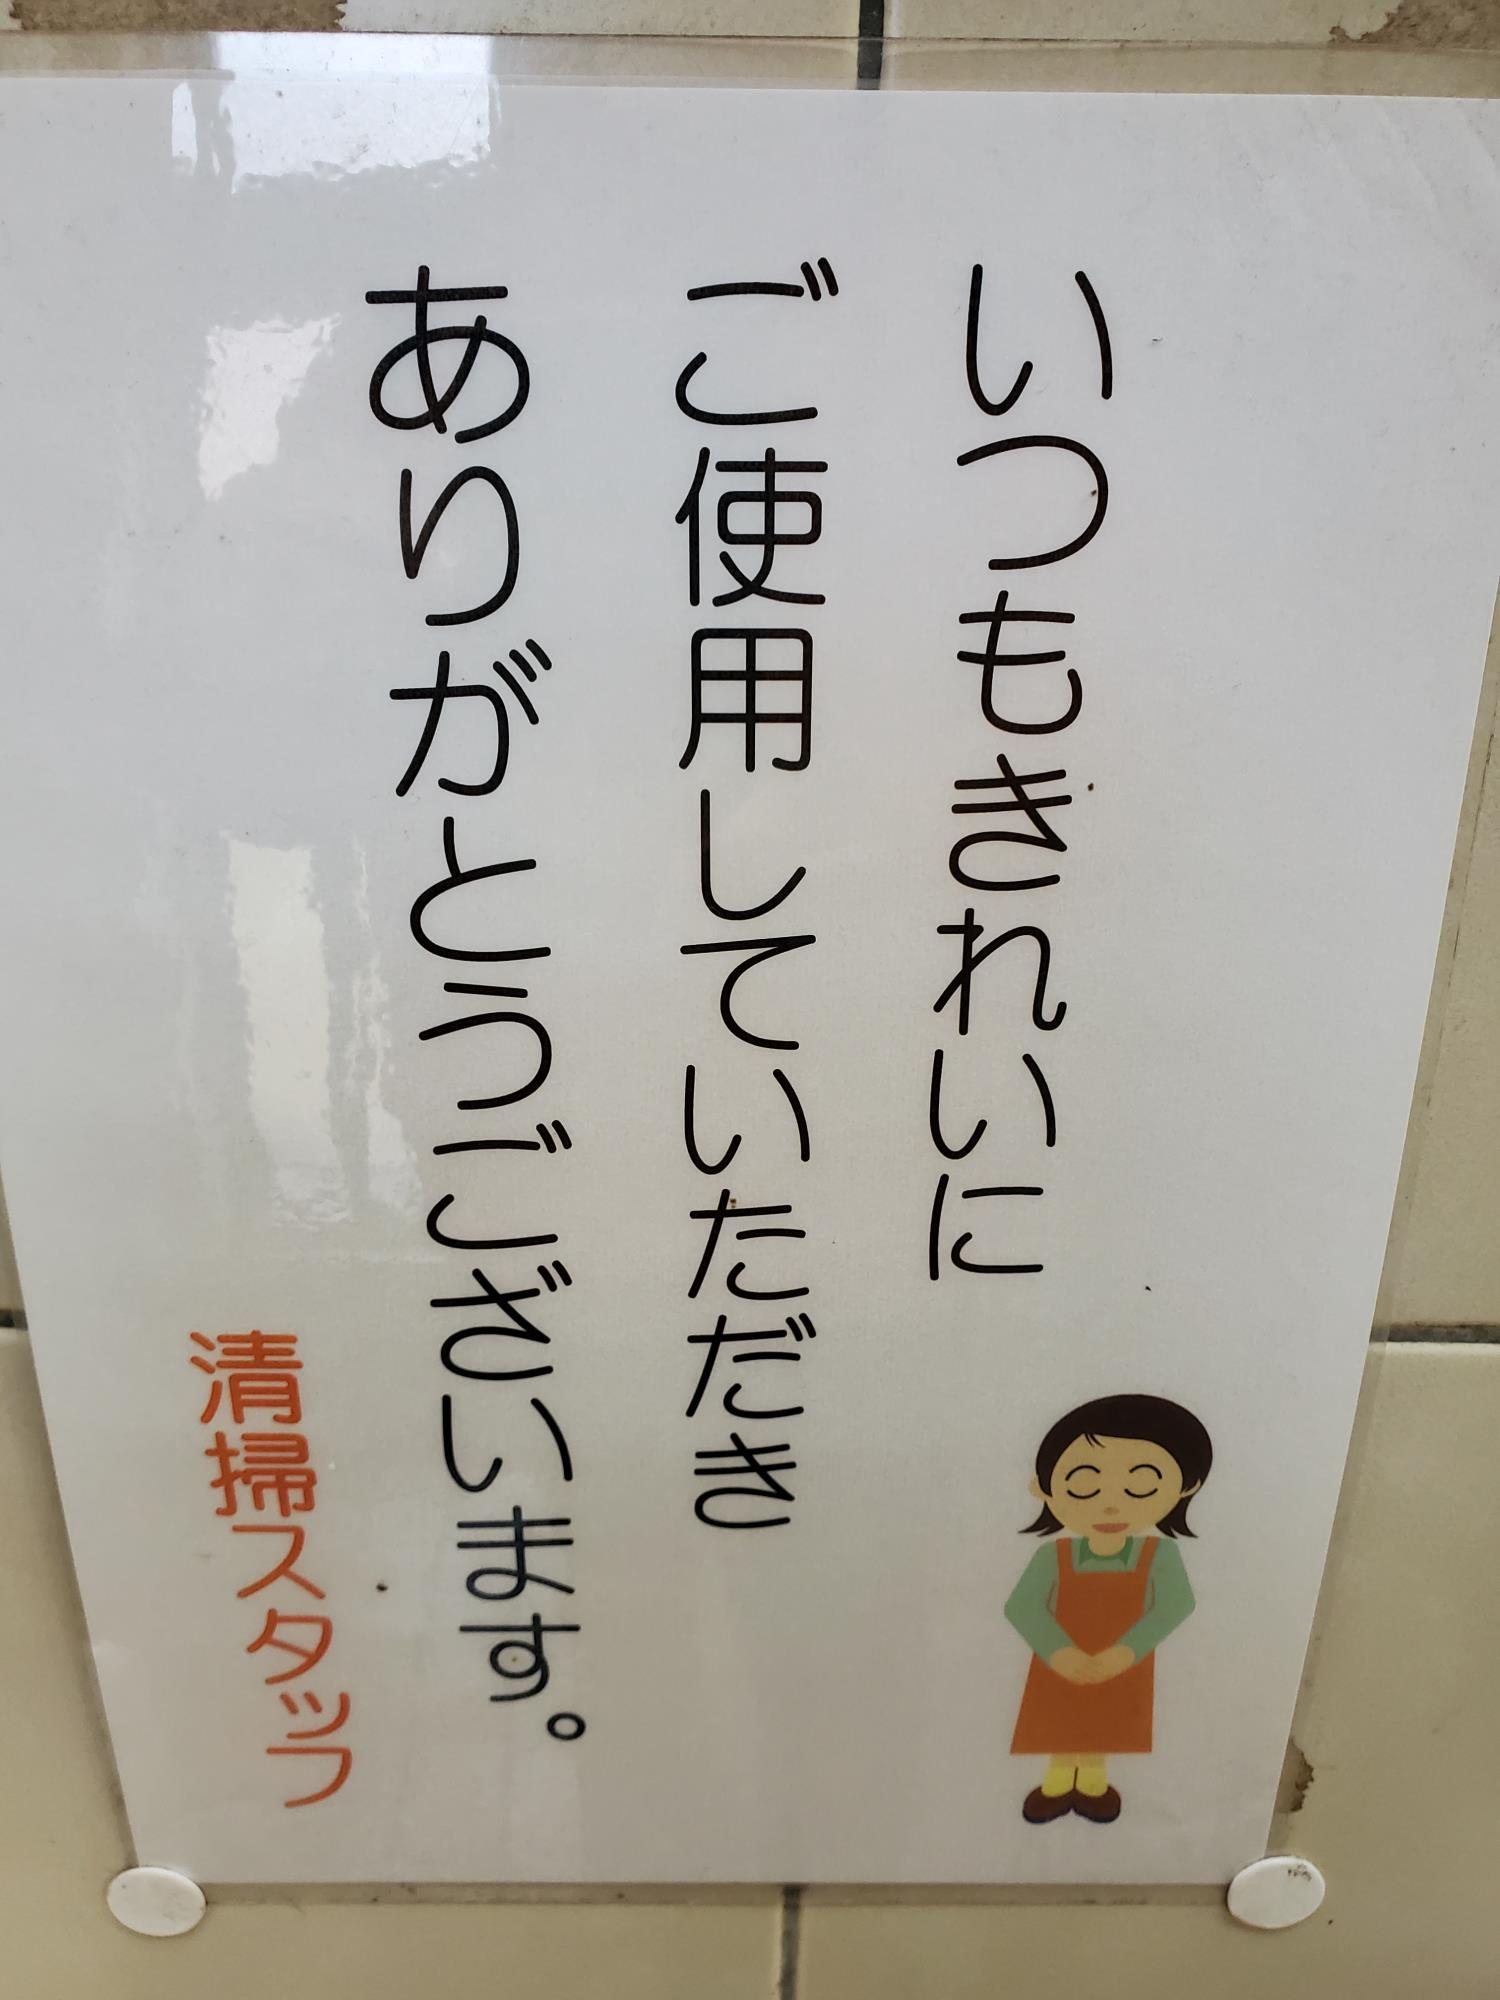 いつもきれいに
ご使用していただき
ありがとうございます。
清掃スタッフ